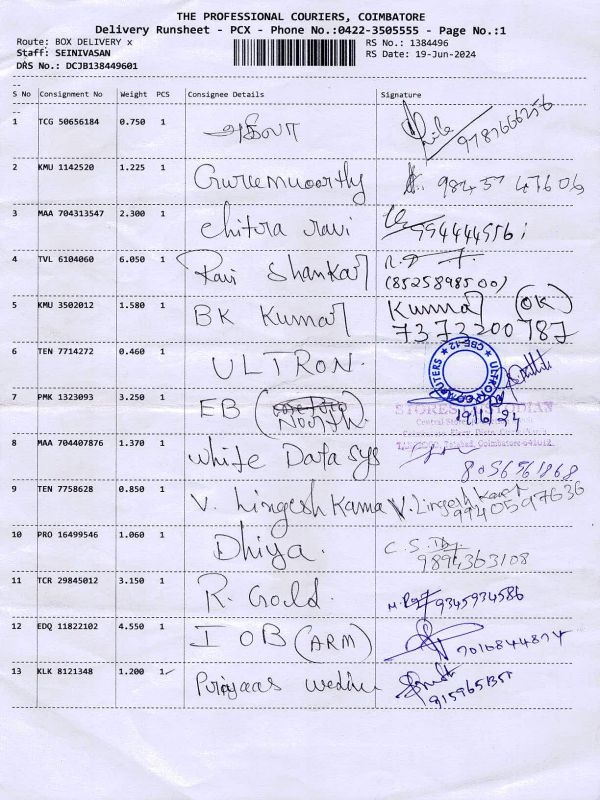 THE PROFESSIONAL COURIERS, COIMBATORE
Delivery Runsheet - PCX - Phone No.:0422-3505555 - Page No.:1
Route: BOX DELIVERY x
RS No.: 1384496
Staff: SEINIVASAN
RS Date: 19-Jun-2024
DRS No.: DCJB138449601
S No Consignment No Weight PCS Consignee Details Signature
1 TCG 50656184 0.750 1 9787666256
2 KMU 1142520 1.225 1 Gurumoorthy 98457 47606
3 MAA 704313547 2.300 1 chitra ravi
4 TVL 6104060 6.050 1 Ravi Shankar
(8525898500)
5 KMU 3502012 1.580 1 BK Kumar Kumar (OK)
7373200787
6 TEN 7714272 0.460 1 ULTRON. ULTRON COMPUTERS CBE-12
7 PMK 1323093 3.250 1 EB (North) 19/6/24
STORES CUSTODIAN
Tatabad, Coimbatore-641012
8 MAA 704407876 1.370 1 White Data Sys
8056561868
9 TEN 7758628 0.850 1 V. Lingesh Kumar V. Lingesh Kumar
9940597636
10 PRO 16499546 1.060 1 Dhiya. C.S.
9894363108
11 TCR 29845012 3.150 1 R. Gold. 9345934586
12 EDQ 11822102 4.550 1 IOB (ARM) 7010844874
13 KLK 8121348 1.200 1